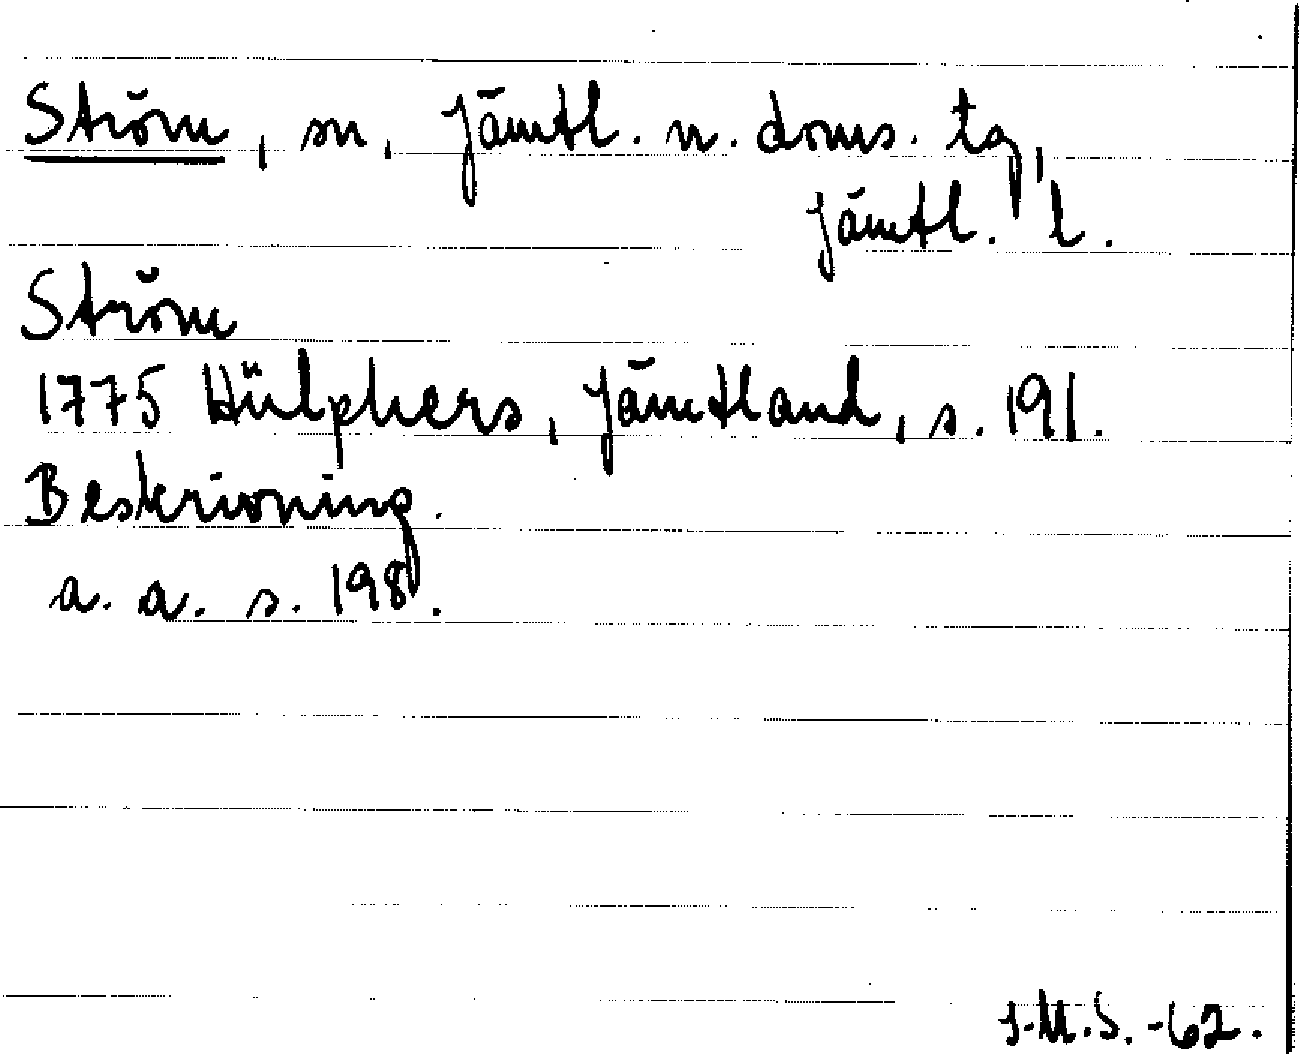 Ström, sn, Jämtl. n. doms. tg,
Jämtl. l.
Ström
1775 Hülphers, Jämtland, s. 191.
Beskrivning.
a. a. s. 198.
J.M.S. -62.